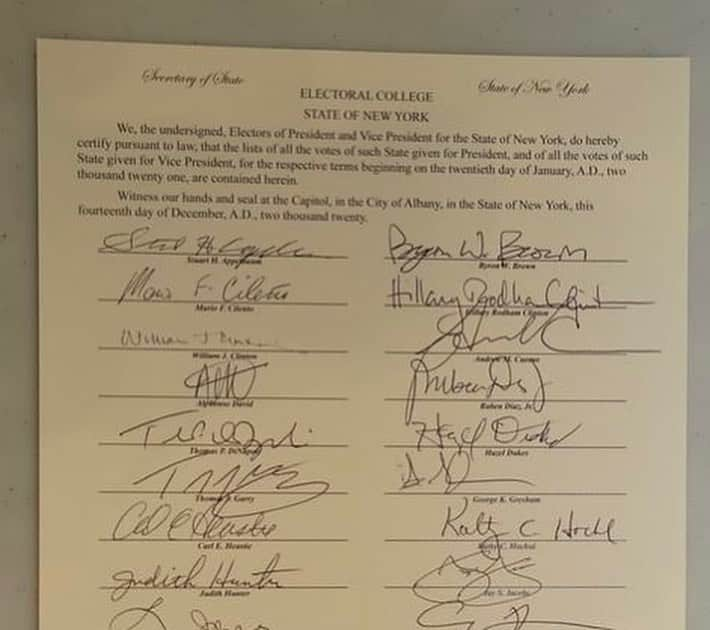 Secretary of State
State of New York
ELECTORAL COLLEGE
STATE OF NEW YORK
We, the undersigned, Electors of President and Vice President for the State of New York, do hereby
certify pursuant to law, that the lists of all the votes of such State given for President, and of all the votes of such
State given for Vice President, for the respective terms beginning on the twentieth day of January, A.D., two
thousand twenty one, are contained herein.
Witness our hands and seal at the Capitol, in the City of Albany, in the State of New York, this
fourteenth day of December, A.D., two thousand twenty.
Byron W. Brown
Stuart H. Appelbaum
Byron W. Brown
Mario F. Cilento
Hillary Rodham Clinton
Mario F. Cilento
Hillary Rodham Clinton
William J. Clinton
Andrew M. Cuomo
Alphonso David
Ruben Diaz, Jr.
Hazel Dukes
Thomas P. DiNapoli
Hazel Dukes
Thomas J. Garry
George K. Gresham
Carl E. Heastie
Kathy C. Hochul
Carl E. Heastie
Kathy C. Hochul
Judith Hunter
Judith Hunter
Jay S. Jacobs